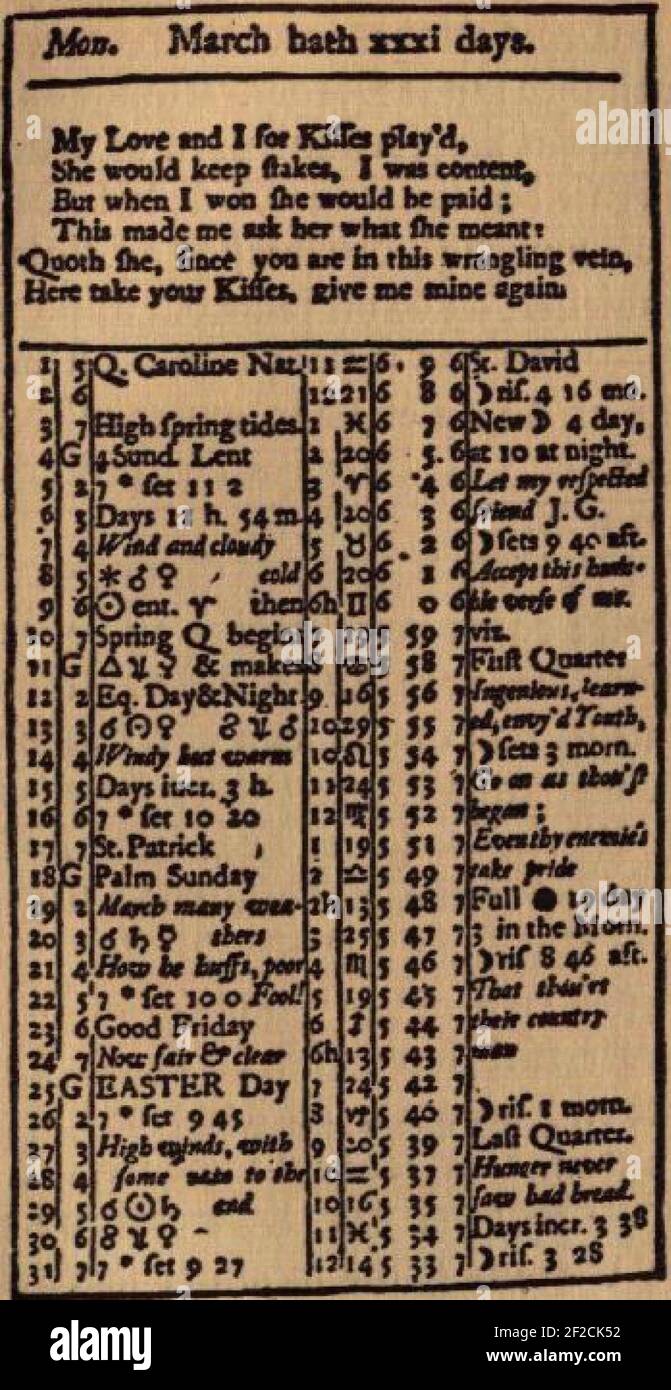 Mon. March hath xxxi days.
My Love and I for Kiſſes play'd,
She would keep ſtakes, I was content,
But when I won ſhe would be paid ;
This made me ask her what ſhe meant:
Quoth ſhe, ſince you are in this wrangling vein,
Here take your Kiſſes, give me mine again.
1 5 Q. Caroline Nat. 11 ♒ 6 9 6 St. David
2 6 12 21 6 8 6 ☽ riſ. 4 16 mo.
3 7 High ſpring tides. 1 ♓ 6 7 6 New ☽ 4 day,
4 G 4 Sund. Lent 2 20 6 5 6 at 10 at night.
5 2 7 * ſet 11 2 3 ♈ 6 4 6 Let my reſpected
6 3 Days 11 h. 54 m 4 20 6 3 6 friend J. G.
7 4 Wind and cloudy 5 ♉ 6 2 6 ☽ ſets 9 40 aft.
8 5 ⚹ ♂ ♀ cold 6 20 6 1 6 Accept this hum-
9 6 ☉ ent. ♈ then 6h ♊ 6 0 6 ble verſe of me.
10 7 Spring Q. begins 5 59 7 viz.
11 G △ ♃ ☿ & makes 5 58 7 Firſt Quarter
12 2 Eq. Day&Night 9 16 5 56 7 Ingenious, learn-
13 3 ☌ ☉ ♀ ☍ ♃ ♂ 10 29 5 55 7 ed, envy'd Youth,
14 4 Windy but warm 10 ♌ 5 54 7 ☽ ſets 3 morn.
15 5 Days incr. 3 h. 11 24 5 53 7 Go on as thou'ſt
16 6 7 * ſet 10 20 12 ♍ 5 52 7 began ;
17 7 St. Patrick 1 19 5 51 7 Even thy enemie's
18 G Palm Sunday 2 ♎ 5 49 7 take pride
19 2 March many wea- 2h 13 5 48 7 Full ● 19 day
20 3 ☌ ♄ ☿ thers 3 25 5 47 7 3 in the Morn.
21 4 How he huffs, poor 4 ♏ 5 46 7 ☽ riſ 8 46 aft.
22 5 7 * ſet 10 0 Fool! 5 19 5 45 7 That thou'rt
23 6 Good Friday 6 ♐ 5 44 7 their country
24 7 Now fair & clear 6h 13 5 43 7 man
25 G EASTER Day 7 24 5 42 7
26 2 7 * ſet 9 45 8 ♑ 5 40 7 ☽ riſ. 1 morn.
27 3 High winds, with 9 20 5 39 7 Laſt Quarter.
28 4 ſome rain to the 10 ♒ 5 37 7 Hunger never
29 5 ☌ ☉ ♄ end 10 16 5 35 7 ſaw bad bread.
30 6 ☍ ♃ ♀ 11 ♓ 5 34 7 Days incr. 3 38
31 7 7 * ſet 9 27 12 14 5 33 7 ☽ riſ. 3 28
alamy
Image ID: 2F2CK52
www.alamy.com